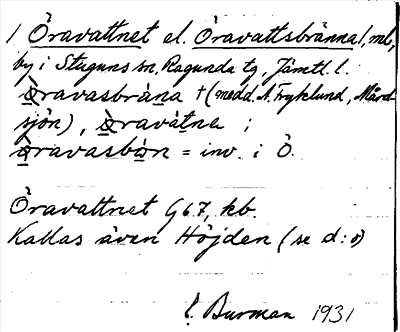 1 Öravattnet el. Öravattsbränna, ml,
by i Stuguns sn, Ragunda tg, Jämtl. l.
Òravasbrána † (medd. A. Fryklund, Mård-
sjön), Òravátne ;
Òravasbón = inv. i Ö.
Öravattnet G67, kb.
Kallas även Höjden (se d:o)
E. Burman 1931